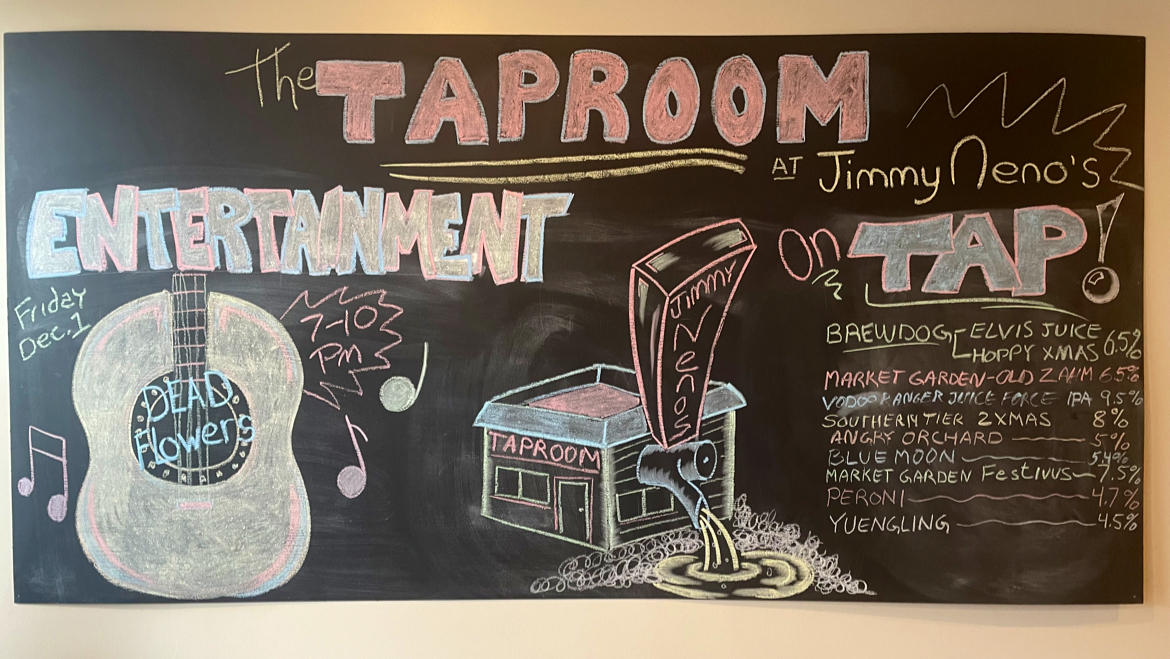 The TAPROOM
AT Jimmy Neno's
ENTERTAINMENT
Friday
Dec. 1
7-10
PM
DEAD
Flowers
TAPROOM
Jimmy
Nenos
On TAP!
BREWDOG ELVIS JUICE 6.5%
HOPPY XMAS
MARKET GARDEN-OLD ZAHM 6.5%
VODOO RANGER JUICE FORCE IPA 9.5%
SOUTHERN TIER 2XMAS 8%
ANGRY ORCHARD 5%
BLUE MOON 5.4%
MARKET GARDEN Festivus 7.5%
PERONI 4.7%
YUENGLING 4.5%